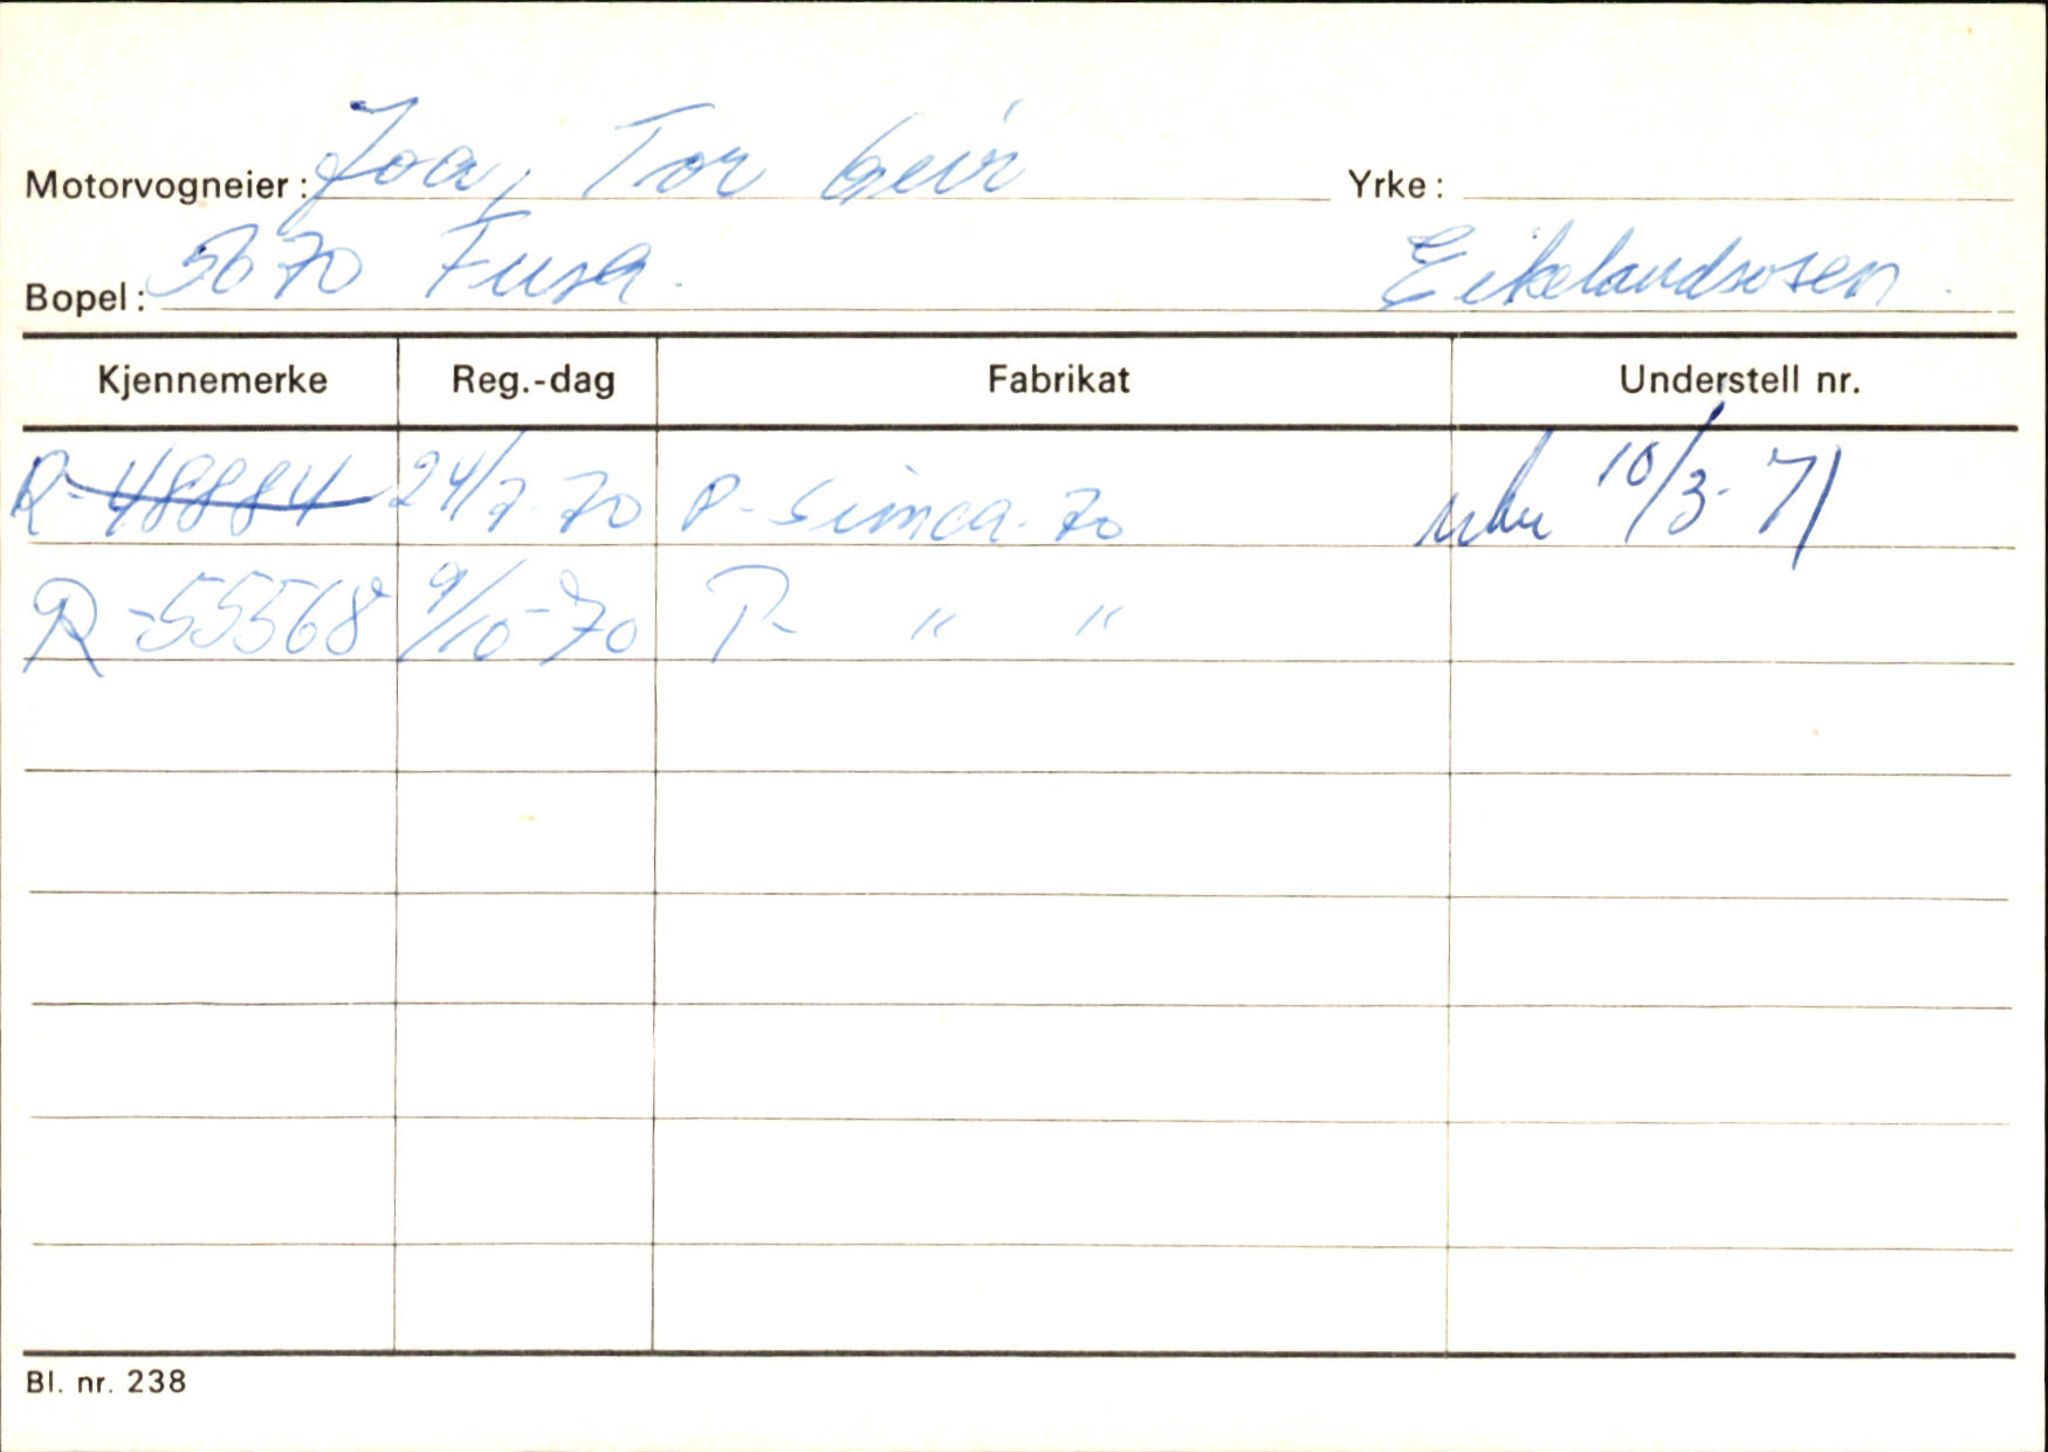 Motorvogneier: Joa, Tor Geir Yrke:
Bopel: 5670 Fusa. Eikelandsosen.
Kjennemerke Reg.-dag Fabrikat Understell nr.
R-48884 24/7-70 P-Simca-70 10/3-71
R-55568 9/10-70 P- " "
Bl. nr. 238